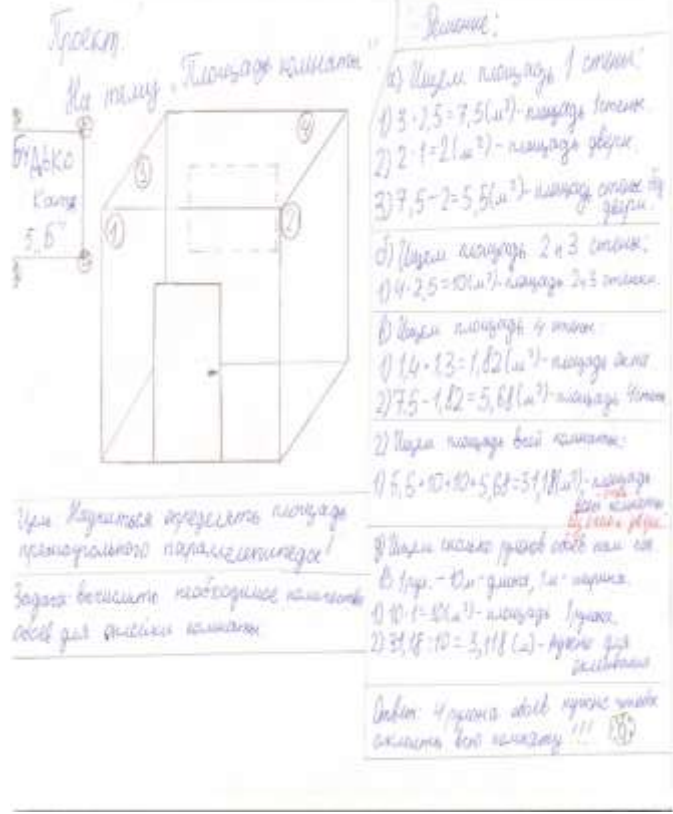 Проект.
На тему „Площадь комнаты"
Будько
Катя
5 „Б"
1
2
3
4
Цель: Научиться определять площадь
прямоугольного параллелепипеда!
Задача: вычислить необходимое количество
обоев для оклейки комнаты
Решение:
а) Ищем площадь 1 стены:
1) 3·2,5=7,5(м²)-площадь 1стены.
2) 2·1=2(м²)-площадь двери.
3) 7,5-2=5,5(м²)-площадь стены без
двери.
б) Ищем площадь 2 и 3 стены:
1) 4·2,5=10(м²)-площадь 2и3 стенки.
в) Ищем площадь 4 стены:
1) 1,4·1,3=1,82(м²)-площадь окна
2) 7,5-1,82=5,68(м²)-площадь 4стены
г) Ищем площадь всей комнаты:
1) 5,5+10+10+5,68=31,18(м²)-площадь
всей комнаты
без окна и двери
д) Ищем сколько рулонов обоев нам
В 1рул.-10м-длина, 1м-ширина.
1) 10·1=10(м²)-площадь 1рулона.
2) 31,18:10=3,118( )-нужно для
оклеивания
Ответ: 4 рулона обоев нужно чтобы
оклеить всю комнату!!!